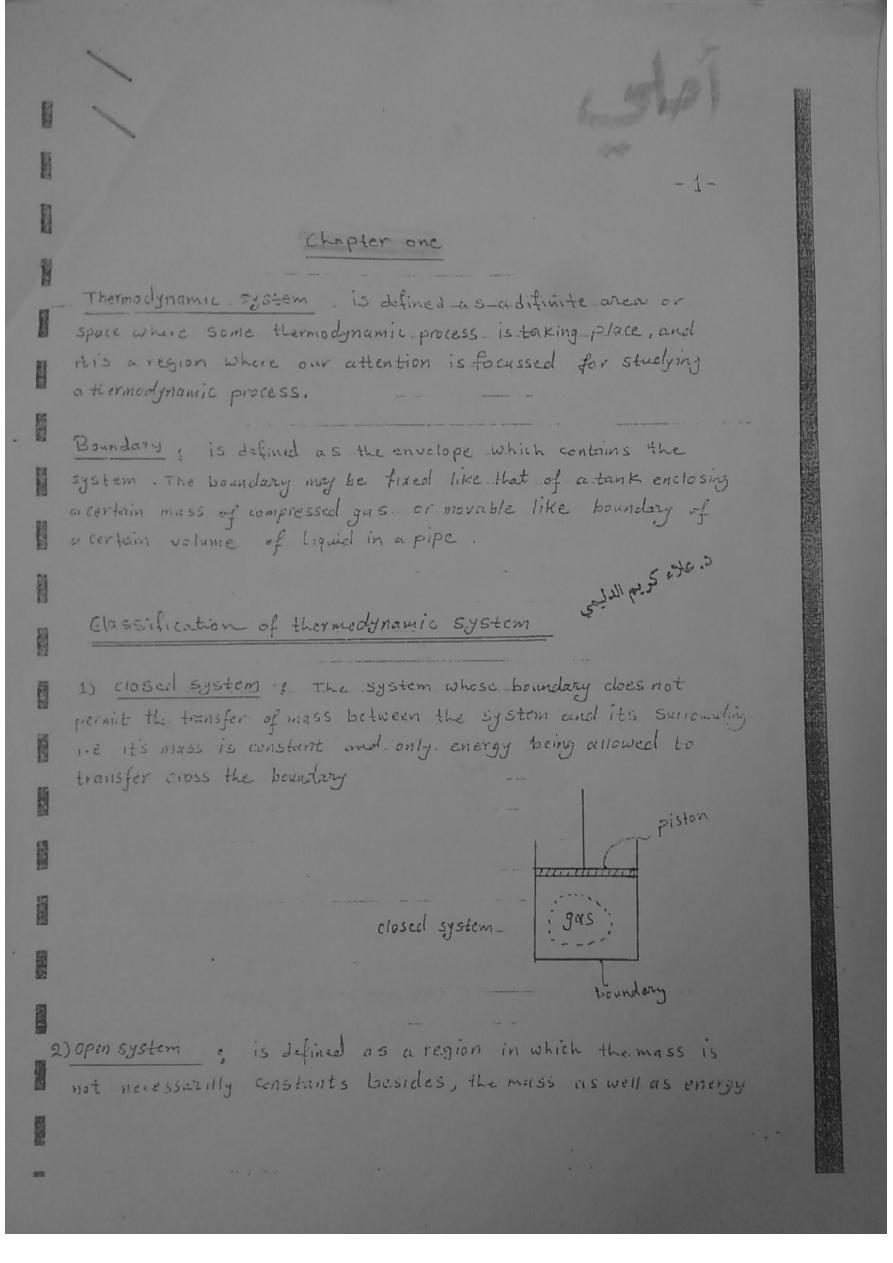 أصلي
- 1 -
Chapter one
Thermodynamic system : is defined as a difinite area or
space where some thermodynamic process is taking place, and
it is a region where our attention is focussed for studying
a thermodynamic process.
Boundary ; is defined as the envelope which contains the
system. The boundary may be fixed like that of a tank enclosing
a certain mass of compressed gas or movable like boundary of
a certain volume of liquid in a pipe.
د. علاء كريم الدليمي
Classification of thermodynamic system
1) closed system ; The system whose boundary does not
permit the transfer of mass between the system and its surrounding
i.e it's mass is constant and only energy being allowed to
transfer cross the boundary
piston
gas
closed system
boundary
2) open system ; is defined as a region in which the mass is
not necessarilly constants besides, the mass as well as energy